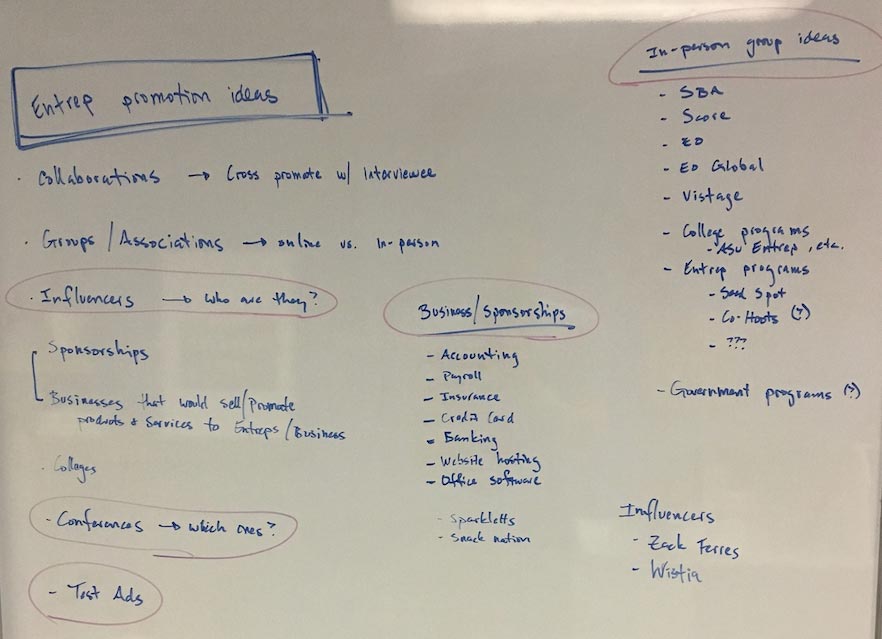 Entrep promotion ideas
· Collaborations → Cross promote w/ Interviewee
· Groups / Associations → online vs. In-person
· Influencers → who are they?
Sponsorships
Businesses that would sell/promote
products & services to Entreps / Business
· Colleges
- Conferences → which ones?
- Test Ads
Business/Sponsorships
- Accounting
- Payroll
- Insurance
- Credit Card
- Banking
- Website hosting
- Office software
- Sparkletts
- Snack nation
In-person group ideas
- SBA
- Score
- EO
- EO Global
- Vistage
- College programs
- ASU Entrep, etc.
- Entrep programs
- Seed Spot
- Co-Hoots (?)
- ???
- Government programs (?)
Influencers
- Zack Ferres
- Wistia